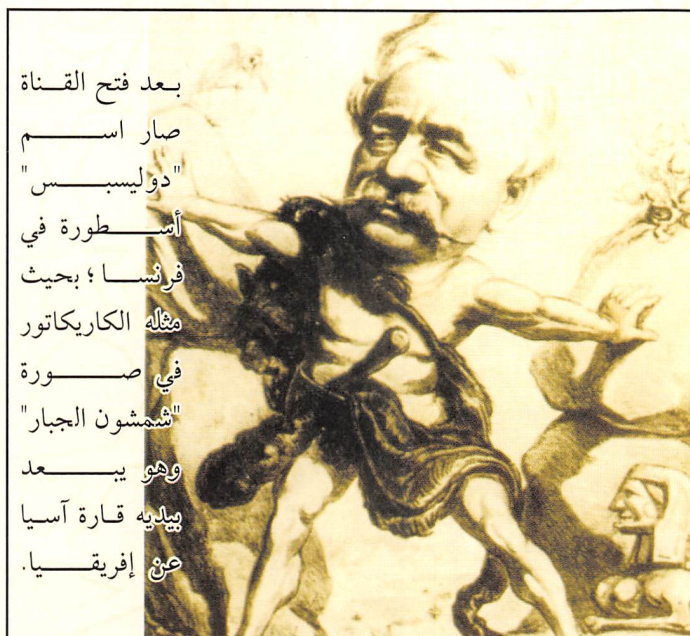 بعد فتح القناة
صار اسم
"دوليسبس"
أسطورة في
فرنسا ؛ بحيث
مثله الكاريكاتور
في صورة
"شمشون الجبار"
وهو يبعد
بيديه قارة آسيا
عن إفريقيا.